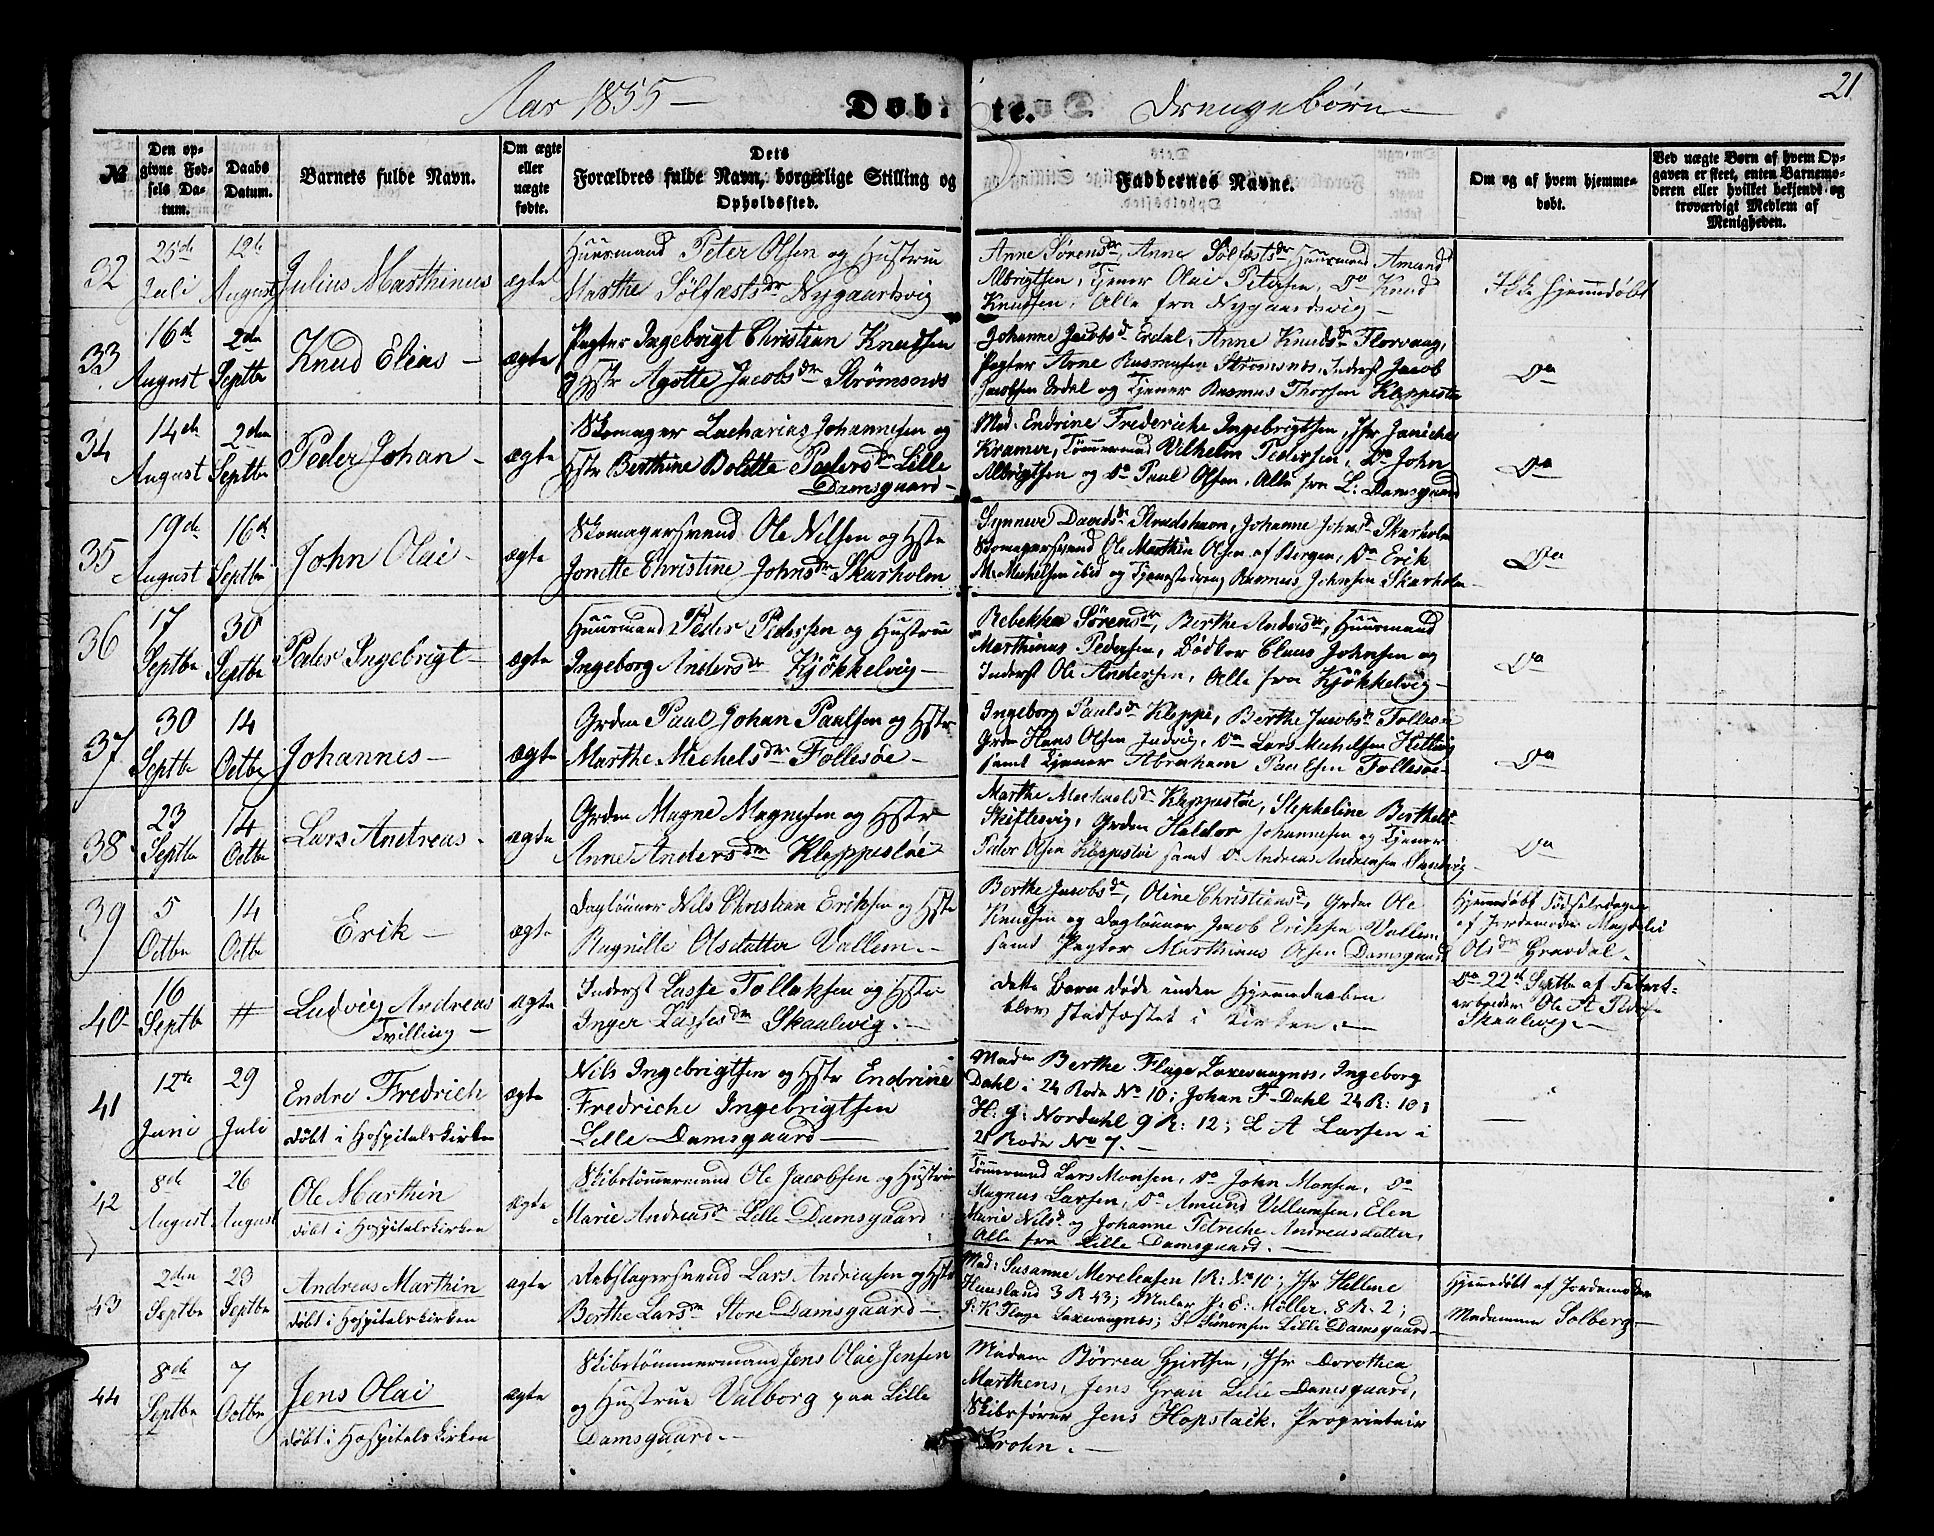 21
Aar 1855 — Døbte. Drengebørn
№
Den op-
givne Fød-
sels Da-
tum.
Daabs
Datum.
Barnets fulde Navn.
Om ægte
eller
uægte
fødte.
Dets
Forældres fulde Navn, borgerlige Stilling og
Opholdssted.
Faddernes Navne.
Om og af hvem hjemme-
døbt.
Ved uægte Børn af hvem Op-
gaven er skeet, enten Barnemo-
deren eller hvilket bekjendt og
troværdigt Medlem af
Menigheden.
32
25de
Juli
12te
August
Julius Marthinus
ægte
Huusmand Peter Olsen og Hustrue
Marthe Sølfæstsdr Nygaardsvig
Anne Sørensdr, Anne Sølfæstsdr, Huusmand Amund
Albrigtsen, Tjener Olai Petersen, Do Knud
Knudsen, Alle fra Nygaardsvig —
Ikke hjemmedøbt
33
16de
August
2den
Septbr
Knud Elias —
ægte
Pagter Ingebrigt Christian Knudsen
og Hstr Agotte Jacobsdr Strømsnes
Johanne Jacobsdr Erdal, Anne Knudsdr Florvaag,
Pagter Arne Rasmusen Strømsnes, Inderst Jacob
Jacobsen Erdal og Tjener Rasmus Thorsen Kleppestø
Do
34
14de
August
2den
Septbr
Peder Johan —
ægte
Skomager Zacharias Johannesen og
Hstr Berthine Bolette Pedersdr Lille
Damsgaard —
Mad. Endrine Frederiche Ingebrigtsen, Jfr Janiche
Kramer, Tømmermand Vilhelm Pedersen, Do John
Albrigtsen og Do Paul Olsen, Alle fra L: Damsgaard
Do
35
19de
August
16de
Septbr
John Olai —
ægte
Skomagersvend Ole Nilsen og Hstr
Jonette Christine Johnsdr Skarholm
Synneve Davidsdr Strudshavn, Johanne Johnsd Skarholm
Skomagersvend Ole Marthin Olsen af Bergen, Do Erik
M. Michelsen ibid og Tjenestedreng Rasmus Johnsen Skarholm
Do
36
17
Septbr
30
Septbr
Peder Ingebrigt —
ægte
Huusmand Peder Pedersen og Hustrue
Ingeborg Andersdr Kjøkkelvig —
Rebekka Sørensdr, Berthe Andersdr, Huusmand
Marthinus Pedersen, Bødker Claus Johnsen og
Inderst Ole Andersen, Alle fra Kjøkkelvig —
Do
37
30
Septbr
14
Octbr
Johannes —
ægte
Grdm Paul Johan Paulsen og Hstr
Marthe Michelsdr Follesøe —
Ingeborg Paulsdr Kleppe, Berthe Jacobsdr Follesøe
Grdm Hans Olsen Judvig, Do Lars Michelsen Hetlevig
samt Tjener Abraham Paulsen Follesøe —
Do
38
23
Septbr
14
Octbr
Lars Andreas —
ægte
Grdm Magne Magnesen og Hstr
Anne Andersdr Kleppestøe
Marthe Michaelsdr Kleppestøe, Stepheline Berthels
Skiftesvig, Grdm Haldor Johannesen og Tjener
Peder Olsen Kleppestøe samt Do Andreas Andreasen Sandvig
Do
39
5
Octbr
14
Octbr
Erik —
ægte
Dagløner Nils Christian Eriksen og Hstr
Ragnille Olsdatter Vallem —
Berthe Jacobsdr, Oline Christiansdr, Grdm Ole
Knudsen og Dagløner Jacob Eriksen Vallem
samt Pagter Marthinus Olsen Damsgaard
Hjemmedøbt Fødselsdagen
af Jordemoder Magdeli
Olsdr Gravdal —
40
16
Septbr
#
Ludvig Andreas
Tvilling —
ægte
Inderst Lasse Tollaksen og Hstr
Inger Lassesdr Skaalvig —
Dette Barn døde inden Hjemmedaaben
blev stadfæstet i Kirken —
Do 22de Septbr af Fabrik-
arbeider Ole A Peders
Skaalvig —
41
12te
Juni
29
Juli
Endre Fredrich
døbt i Hospitalskirken
ægte
Nils Ingebrigtsen og Hstr Endrine
Fredriche Ingebrigtsen
Lille Damsgaard —
Madm Berthe Flage Laxevaagnes, Ingeborg
Dahl i 24 Rode No 10; Johan F. Dahl 24 R: 10;
H. g: Nordahl 9 R: 12; L A Larsen i
21 Rode No 7. —
—
42
8de
August
26
August
Ole Marthin
døbt i Hospitalskirken
ægte
Skibstømmermand Ole Jacobsen og Hustrue
Marie Andreasdr Lille Damsgaard
Tømmermand Lars Monsen, Do John Monsen, Do
Magnus Larsen, Do Amund Villumsen, Elen
Marie Nilsd og Johanne Petriche Andreasdatter,
Alle fra Lille Damsgaard. —
43
2den
Septbr
23
Septbr
Andreas Marthin
døbt i Hospitalskirken
ægte
Rebslagersvend Lars Andreasen og Hstr
Berthe Larsdr Store Damsgaard —
Mad: Susanne Merelensen 1 R: No 10; Jfr Hellene
Hansland 3 R 43; Maler P: E: Möller 8 R. 2;
P: K Flage Laxevaagnes; S. Simonsen Lille Damsgaard —
Hjemmedøbt af Jordemoder
Madamme Solberg —
44
8de
Septbr
7
Octbr
Jens Olai
døbt i Hospitalskirken
ægte
Skibstømmermand Jens Olai Jensen
og Hustrue Valborg paa Lille
Damsgaard —
Madam Børrea Gjertsen, Jfr Dorothea
Marthens, Jens Gran Lille Damsgaard,
Skibsfører Jens Hopstock, Proprietair
Krohn. —